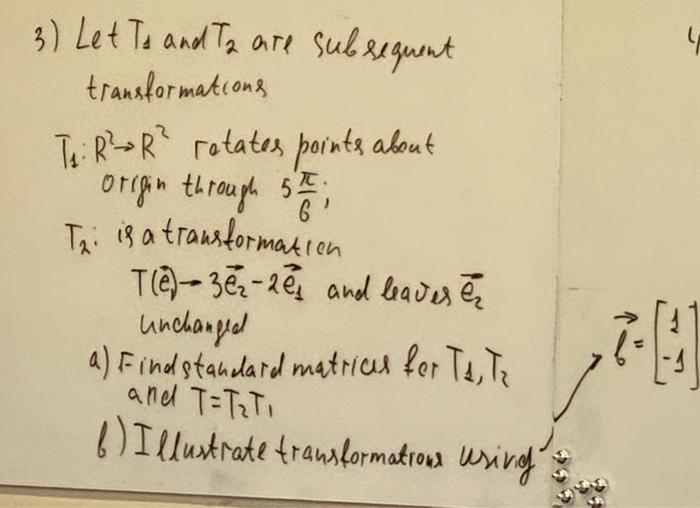 3) Let T₁ and T₂ are subsequent
transformations
T₁: R²→R² rotates points about
origin through 5π/6;
T₂: is a transformation
T(e⃗₁)→3e⃗₂-2e⃗₁ and leaves e⃗₂
unchanged
a) Find standard matrices for T₁, T₂
and T=T₂T₁
b) Illustrate transformations using
b⃗ = [1 -1]